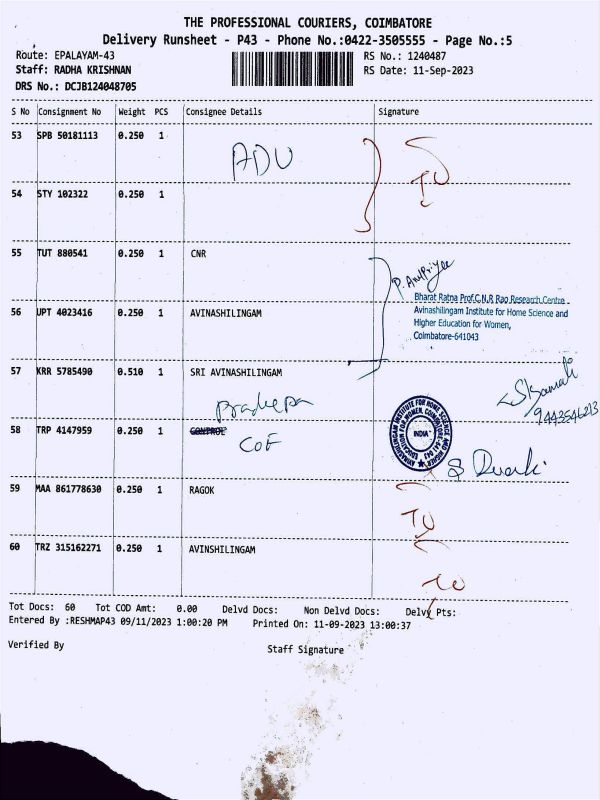 THE PROFESSIONAL COURIERS, COIMBATORE
Delivery Runsheet - P43 - Phone No.:0422-3505555 - Page No.:5
Route: EPALAYAM-43 RS No.: 1240487
Staff: RADHA KRISHNAN RS Date: 11-Sep-2023
DRS No.: DCJB124048705
S No Consignment No Weight PCS Consignee Details Signature
53 SPB 50181113 0.250 1
ADU
TU
54 STY 102322 0.250 1
55 TUT 880541 0.250 1 CNR
Bharat Ratna Prof.C.N.R Rao Research Centre
56 UPT 4023416 0.250 1 AVINASHILINGAM Avinashilingam Institute for Home Science and
Higher Education for Women,
Coimbatore-641043
57 KRR 5785490 0.510 1 SRI AVINASHILINGAM
Pradeepa
9443546213
58 TRP 4147959 0.250 1 CONTROL
COE
INDIA
59 MAA 861778630 0.250 1 RAGOK
TU
60 TRZ 315162271 0.250 1 AVINSHILINGAM
TU
Tot Docs: 60 Tot COD Amt: 0.00 Delvd Docs: Non Delvd Docs: Delvy Pts:
Entered By :RESHMAP43 09/11/2023 1:00:20 PM Printed On: 11-09-2023 13:00:37
Verified By Staff Signature